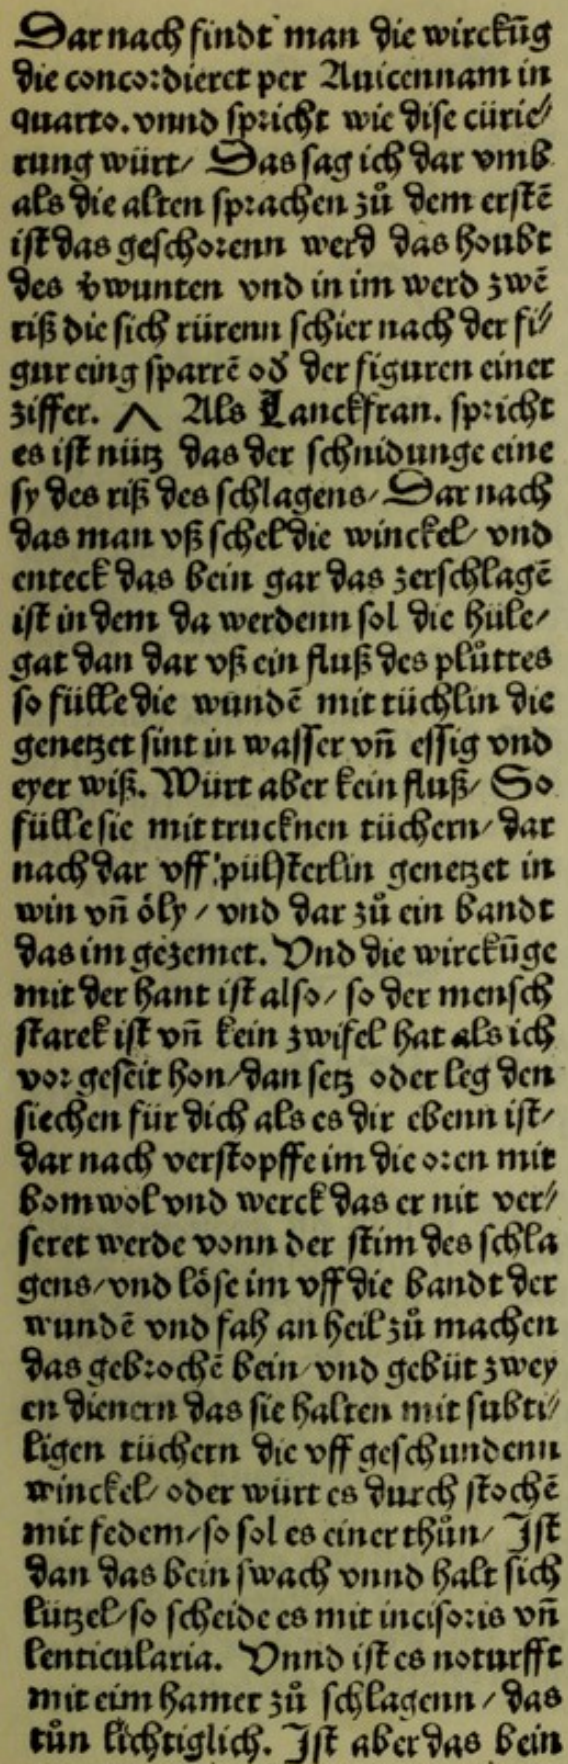 Dar nach findt man die wirckūg
die concordieret per Auicennam in
quarto. vnnd spricht wie dise cürie⸗
rung würt/ Das sag ich dar vmb
als die alten sprachen zů dem erstē
ist das geschorenn werd das houbt
des vwunten vnd in im werd zwē
riß die sich rürenn schier nach der fi⸗
gur eing sparrē od der figuren einer
ziffer. ⋀ Als Lanckfran. spricht
es ist nütz das der schnidunge eine
sy des riß des schlagens/ Dar nach
das man vß schel die winckel/ vnd
enteck das bein gar das zerschlagē
ist in dem da werdenn sol die hüle/
gat dan dar vß ein fluß des plůttes
so fülle die wundē mit tüchlin die
genetzet sint in wasser vñ essig vnd
eyer wiß. Würt aber kein fluß/ So
fülle sie mit trucknen tüchern/ dar
nach dar vff pülsterlin genetzet in
win vñ öly / vnd dar zů ein bandt
das im gezemet. Vnd die wirckūge
mit der hant ist also/ so der mensch
starck ist vñ kein zwifel hat als ich
vor geseit hon/ dan setz oder leg den
siechen für dich als es dir ebenn ist/
dar nach verstopffe im die oren mit
bomwol vnd werck das er nit ver⸗
seret werde vonn der stim des schla
gens/ vnd löse im vff die bandt der
wundē vnd fah an heil zů machen
das gebrochē bein/ vnd gebüt zwey
en dienern das sie halten mit subti⸗
ligen tüchern die vff geschundenn
winckel/ oder würt es durch stochē
mit fedem/ so sol es einer thůn/ Ist
dan das bein swach vnnd halt sich
lützel/ so scheide es mit incisorio vñ
lenticularia. Vnnd ist es noturfft
mit eim hamer zů schlagenn / das
tůn lichtiglich. Ist aber das bein